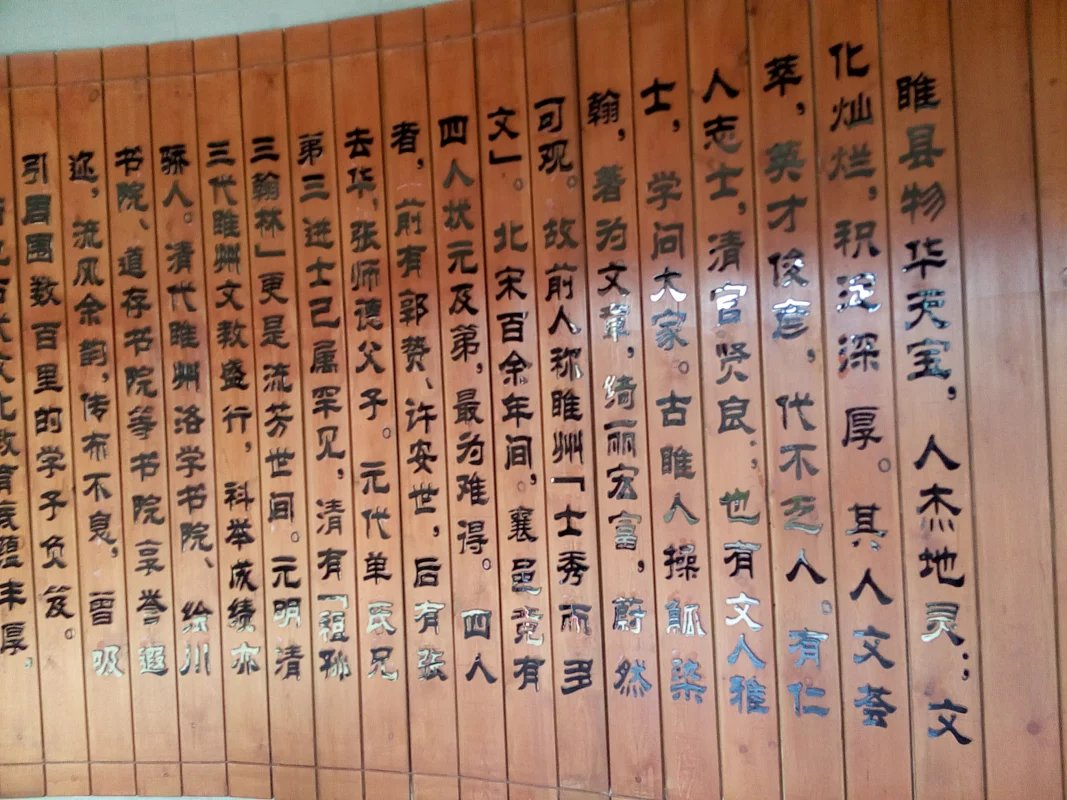 睢县物华天宝，人杰地灵；文
化灿烂，积淀深厚。其人文荟
萃，英才俊彦，代不乏人。有仁
人志士，清官贤良；也有文人雅
士，学问大家。古睢人操觚染
翰，著为文章，绮丽宏富，蔚然
可观。故前人称睢州「士秀而多
文」。北宋百余年间，襄邑竟有
四人状元及第，最为难得。四人
者，前有郭贽、许安世，后有张
去华、张师德父子。元代单氏兄
弟三进士已属罕见，清有「祖孙
三翰林」更是流芳世间。元明清
三代睢州文教盛行，科举成绩亦
骄人。清代睢州洛学书院、绘川
书院、道存书院等书院享誉遐
迩，流风余韵，传布不息，曾吸
引周围数百里的学子负笈。
化教育底蕴丰厚，